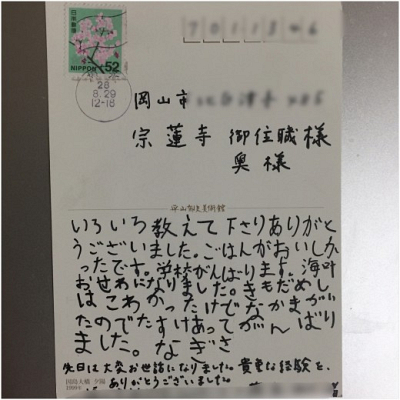 日本郵便
NIPPON 52
28
8.29
12-18
岡山市
宗蓮寺 御住職様
奥様
平山郁夫美術館
いろいろ教えて下さりありがと
うございました。ごはんがおいしか
ったです。学校がんばります。海叶
おせわになりました。きもだめし
はこわかったけどなかまがい
たのでたすけあってがんばり
ました。なぎさ
先日は大変お世話になりました。貴重な経験を、
ありがとうございました。
因島大橋 夕陽
1999年